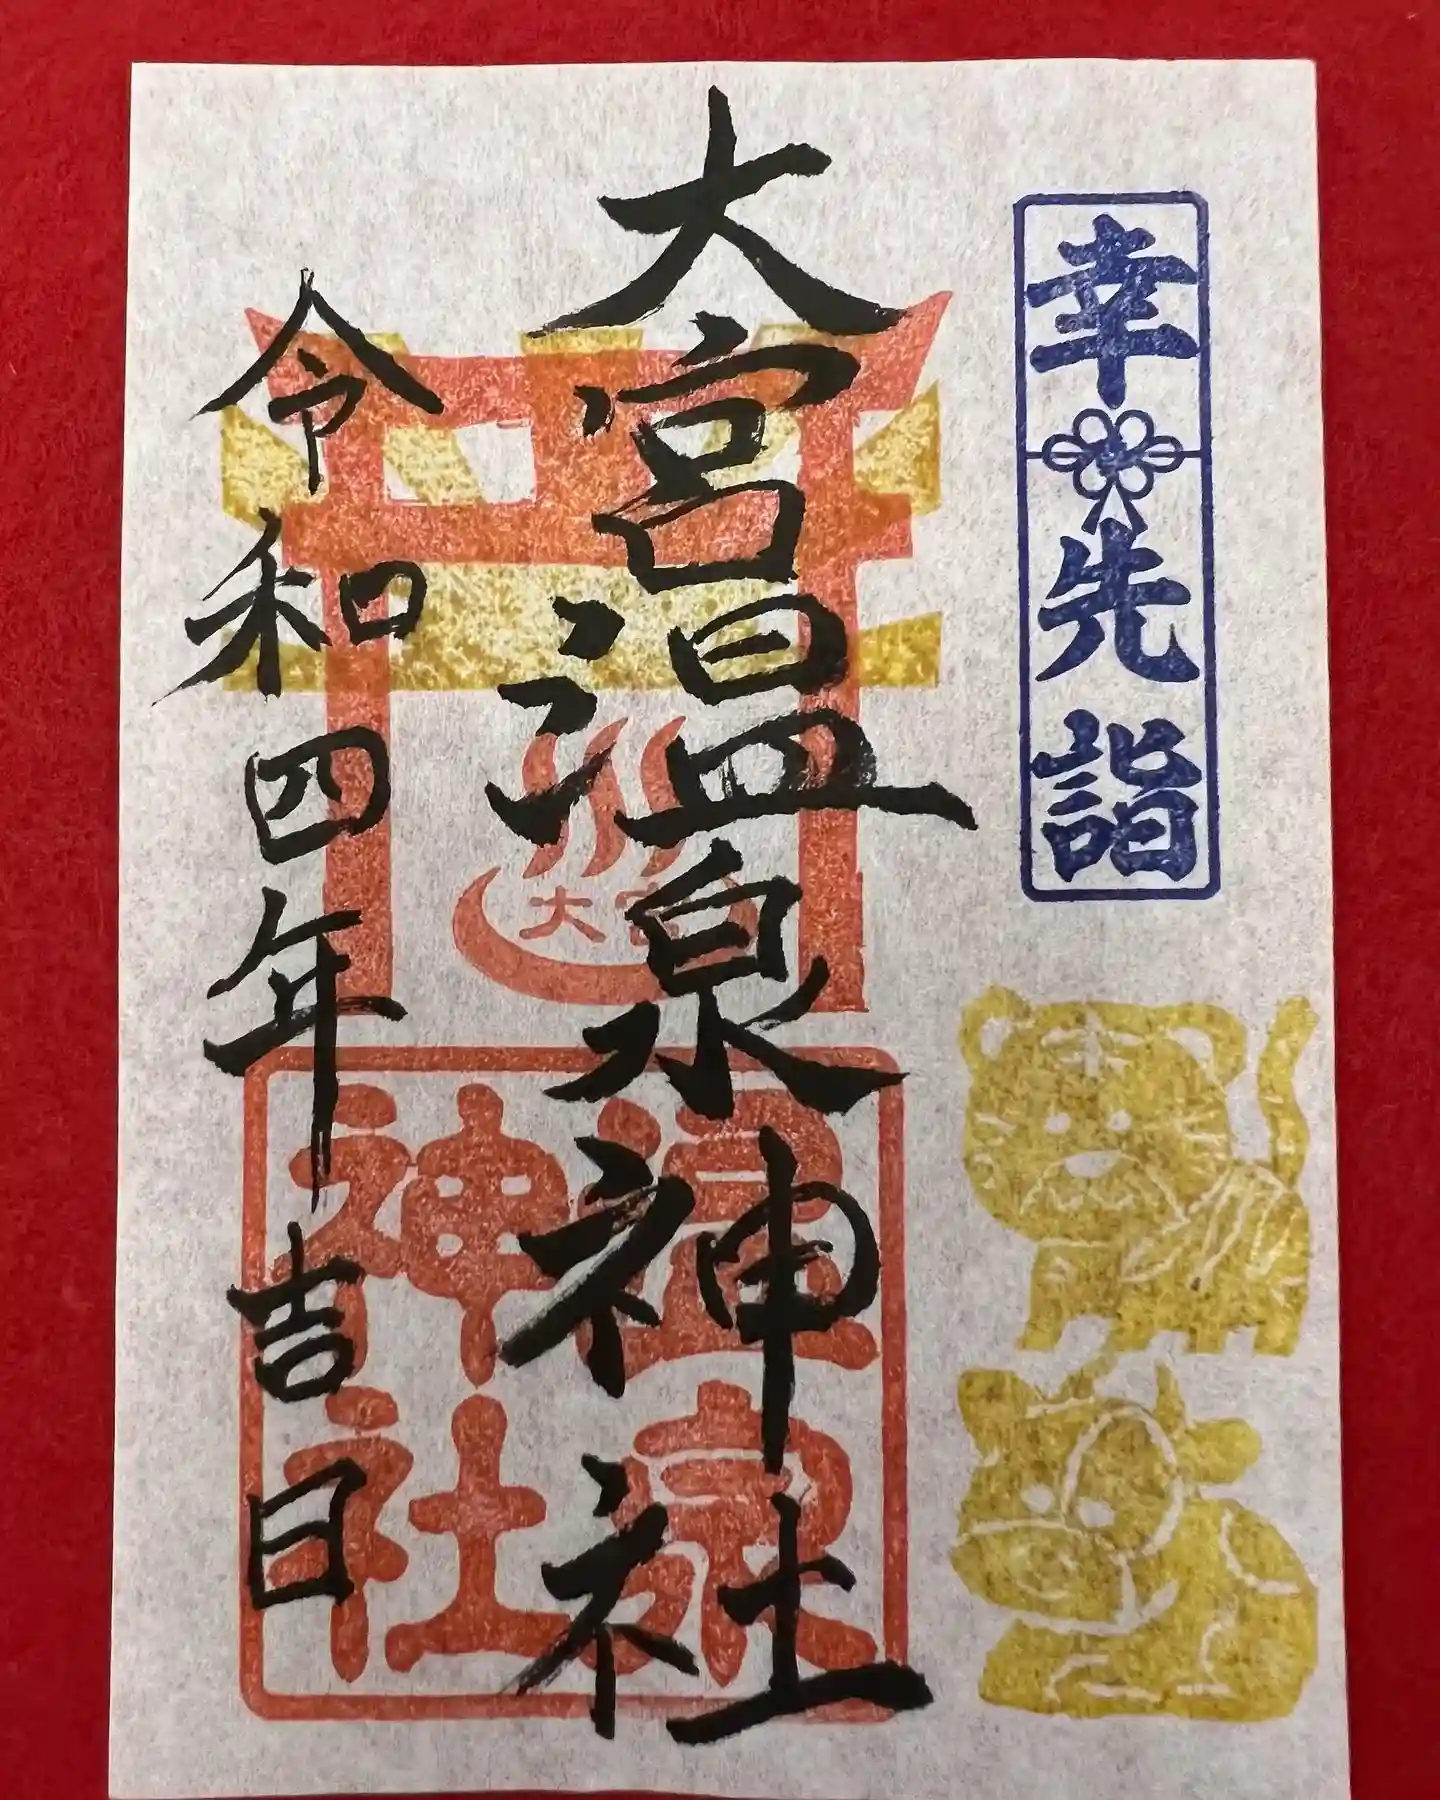 幸先詣
大宮温泉神社
大宮
温泉
神社
令和四年吉日